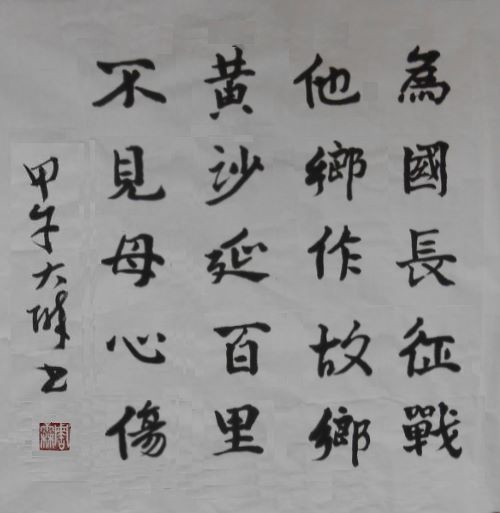 為國長征戰
他鄉作故鄉
黃沙延百里
不見母心傷
甲午大